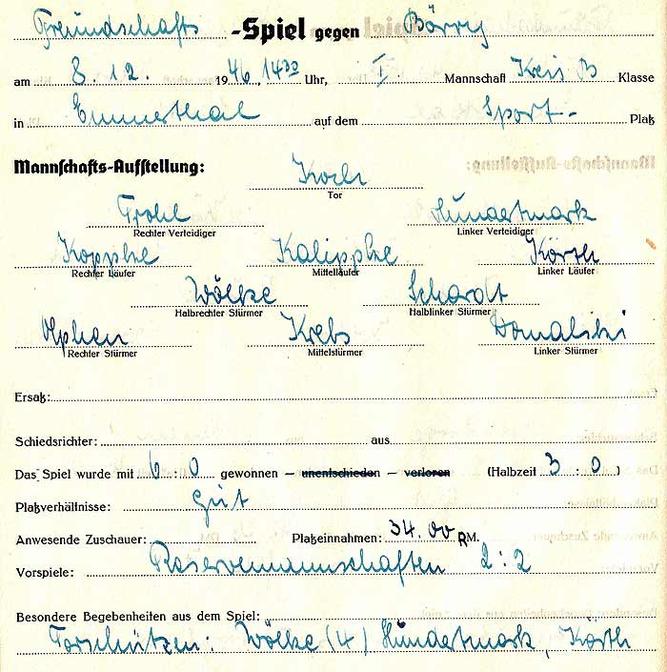 Freundschafts -Spiel gegen Börry
am 8.12. 1946, 14³⁰ Uhr, I Mannschaft Kreis B Klasse
in Emmerthal auf dem Sport- Platz
Mannschafts-Aufstellung:
Koch
Tor
Hundertmark
Rechter Verteidiger Linker Verteidiger
Koppke Kalippke Körth
Rechter Läufer Mittelläufer Linker Läufer
Wölke Schardt
Halbrechter Stürmer Halblinker Stürmer
Krebs
Rechter Stürmer Mittelstürmer Linker Stürmer
Ersatz:
Schiedsrichter: aus
Das Spiel wurde mit 6 : 0 gewonnen – unentschieden – verloren (Halbzeit 3 : 0)
Platzverhältnisse: gut
Anwesende Zuschauer: Platzeinnahmen: 34.00 RM.
Vorspiele: Reservemannschaften 2:2
Besondere Begebenheiten aus dem Spiel:
Torschützen: Wölke (4) Hundertmark, Körth